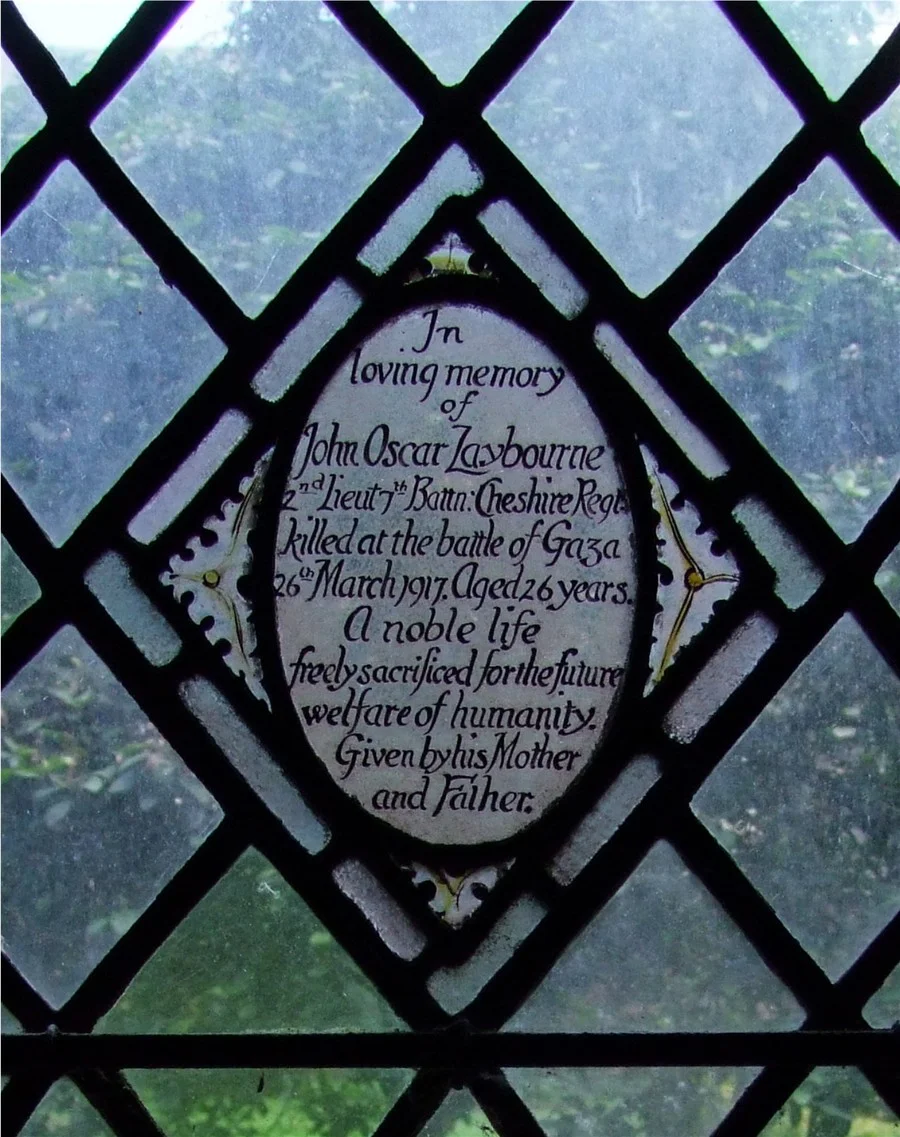 In
loving memory
of
John Oscar Laybourne
2nd Lieut 7th Battn: Cheshire Regt:
killed at the battle of Gaza
26th March 1917. Aged 26 years.
A noble life
freely sacrificed for the future
welfare of humanity.
Given by his Mother
and Father.